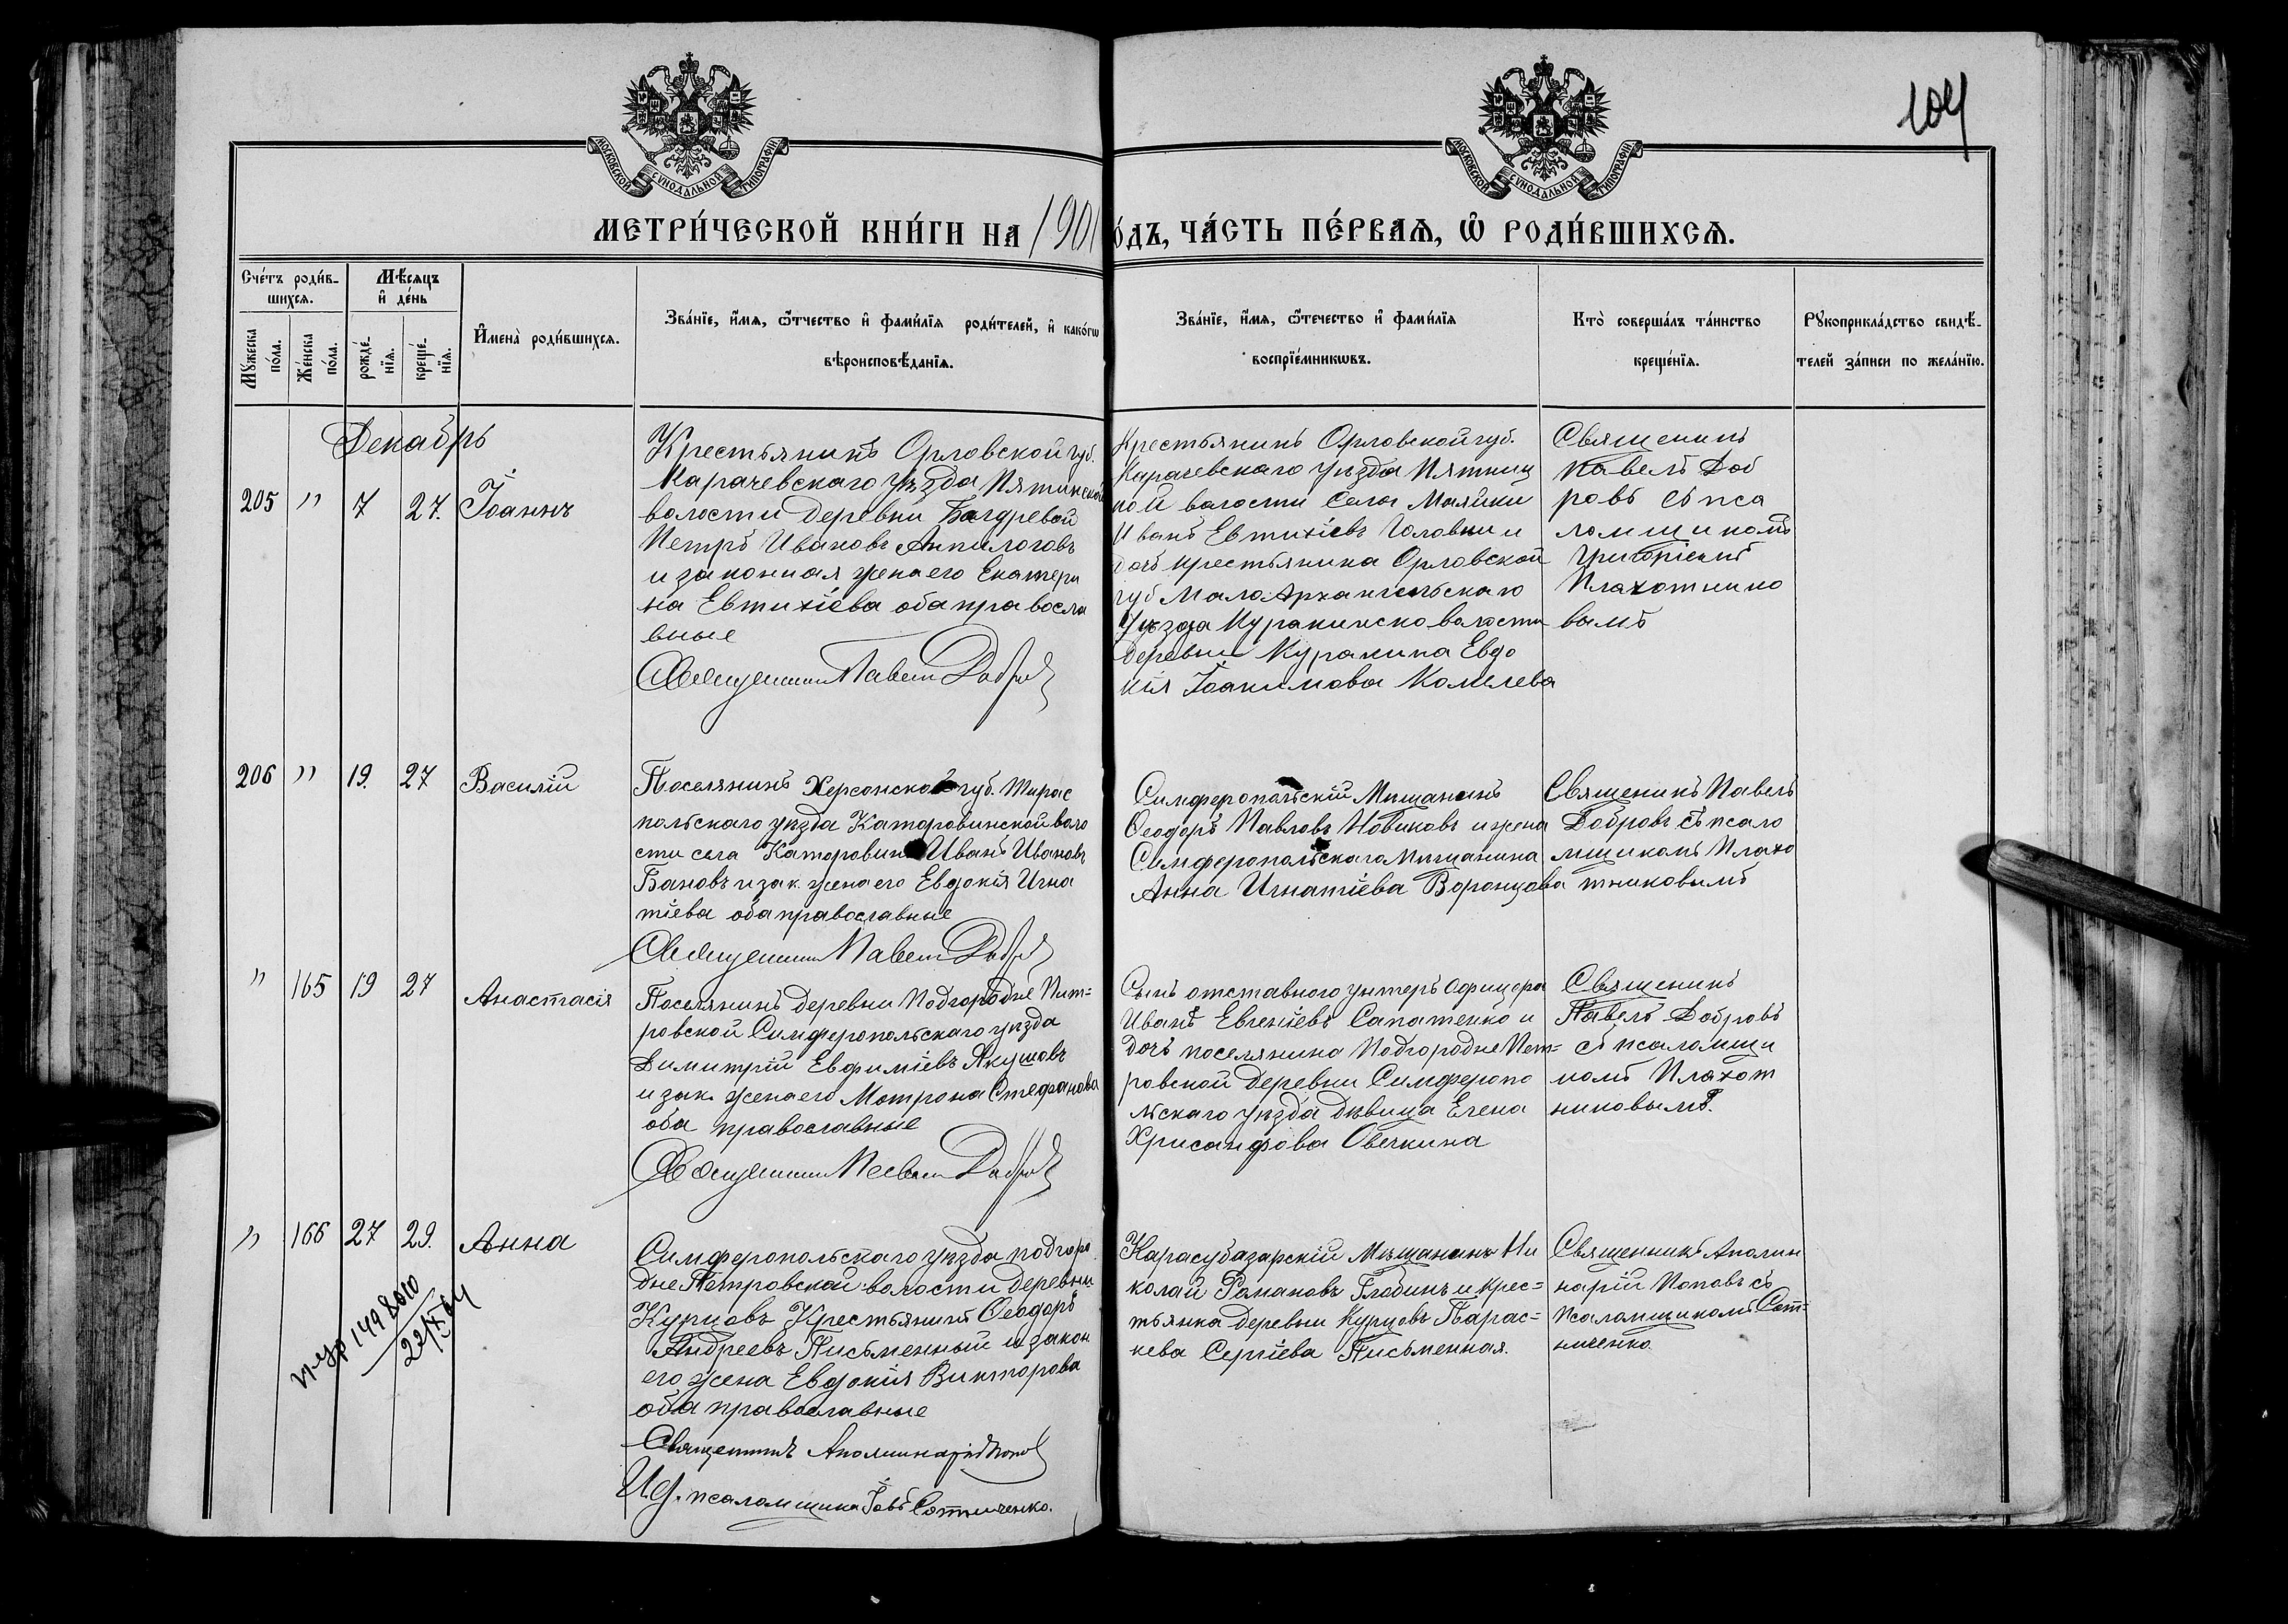 104
МОСКОВСКОЙ СѴНОДАЛЬНОЙ ТИПОГРАФІИ
МОСКОВСКОЙ СѴНОДАЛЬНОЙ ТИПОГРАФІИ
МЕТРИ́ЧЕСКОЙ КНИ́ГИ НА 1901
О́ДЪ, ЧА́СТЬ ПЕ́РВАѦ, Ѡ҆ РОДИ́ВШИХСѦ.
Сче́тъ роди́в-
шихсѧ.
Мѣ́сѧцъ
и҆ де́нь
Мꙋ́жеска
по́ла.
Же́нска
по́ла.
рожде́-
нїѧ.
креще́-
нїѧ.
И҆мена̀ роди́вшихсѧ.
Зва́нїе, и҆́мѧ, ѻ҆́тчество и҆ фами́лїѧ роди́телей, и҆ како́гѡ
вѣроисповѣ́данїѧ.
Зва́нїе, и҆́мѧ, ѻ҆́течество и҆ фами́лїѧ
воспрїе́мникѡвъ.
Кто̀ соверша́лъ та́инство
креще́нїѧ.
Рꙋкоприкла́дство свидѣ́-
телей за́писи по жела́нїю.
Декабрь
205 " 7 27. Іоаннъ
Крестьянинъ Орловской губ.
Карачевскаго уѣзда Пятницкой
волости деревни
Петръ Ивановъ Анпилоговъ
и законная жена его Екатери
на Евтихіева оба правосла
вные
Священникъ Павелъ Добровъ
Крестьянинъ Орловской губ.
Карачевскаго уѣзда Пятниц
кой волости села Маяки
Иванъ Евтихіевъ Головни и
дочь крестьянина Орловской
губ Мало Архангельскаго
уѣзда Куракинско волости
деревни Куракина Евдо
кія Іоакимова Комелева
Священникъ
Павелъ Доб
ровъ съ пса
ломщикомъ
Григоріемъ
Плахотнико
вымъ
206 " 19. 27 Василій
Поселянинъ Херсонской губ. Тирас
польскаго уѣзда Катаровинской воло
сти села Иванъ Ивановъ
Бановъ и зак. жена его Евдокія Игна
тіева оба православные
Священникъ Павелъ Добровъ
Симферопольскій Мѣщанинъ
Ѳеодоръ Павловъ Новиковъ и жена
Симферопольскаго Мѣщанина
Анна Игнатіева Воронцова
Священикъ Павелъ
Добровъ съ псало
мщикомъ Плахо
тниковымъ
" 165 19 27 Анастасія
Поселянинъ деревни Подгородне Пет=
ровской Симферопольскаго уѣзда
Димитрій Евфиміевъ Якушовъ
и зак. жена его Мотрона Стефанова
оба православные
Священникъ Павелъ Добровъ
Сынъ отставного унтеръ офицера
Иванъ Евгеніевъ Сапатенко и
дочь поселянина Подгородне Пет=
ровской деревни Симферопо
льскаго уѣзда дѣвица Елена
Хрисанфова Овечкина
Священикъ
Павелъ Добровъ
съ псаломщи
комъ Плахот
никовымъ.
" 166 27 29. Анна
Симферопольскаго уѣзда подгоро
дне Петровской волости деревни
Курцовъ Крестьянинъ Ѳеодоръ
Андреевъ Письменный и закон
его жена Евдокія Викторова
оба православные
Священникъ Аполлинарій Поповъ
И.д. псаломщика Іовъ Сотниченко.
Карасубазарскій Мѣщанинъ Ни
колай Романовъ Глобинъ и крес=
тьянка деревни Курцовъ Парас=
кева Сергіева Письменная.
Священникъ Аполин
нарій Поповъ съ
псаломщикомъ Сот=
ниченко.
1498010